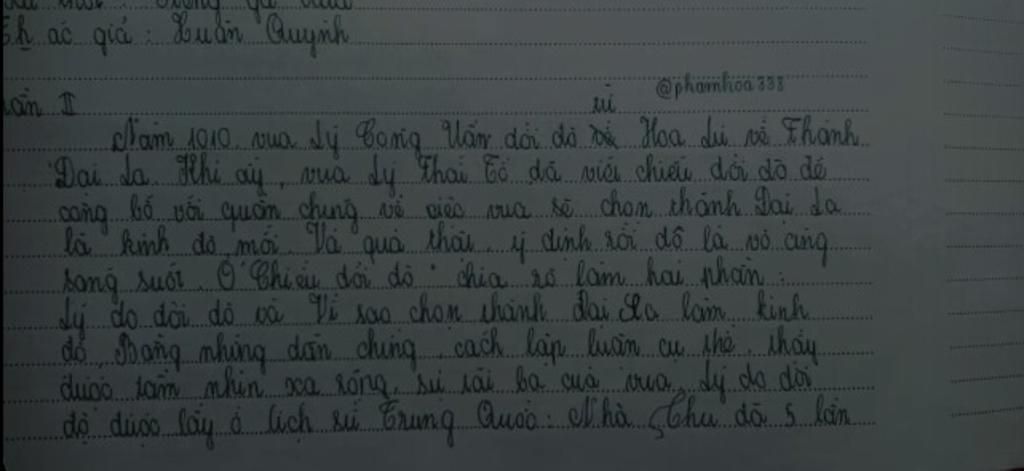 Tác giả: Xuân Quỳnh
@phamhoa333
II
từ
Năm 1010 vua Lý Công Uẩn dời đô Hoa Lư về thành
Đại La. Khi ấy, vua Lý Thái Tổ đã viết chiếu dời đô để
công bố với quần chúng về việc vua sẽ chọn thành Đại La
là kinh đô mới. Và quả thật, ý định rời đô là vô cùng
sáng suốt. Ở "Chiếu dời đô" chia rõ làm hai phần:
Lý do dời đô và Vì sao chọn thành Đại La làm kinh
đô. Bằng những dẫn chứng, cách lập luận cụ thể, thấy
được tầm nhìn xa rộng, sự của vua. Lý do dời
đô được lấy ở lịch sử Trung Quốc: Nhà Chu đã 5 lần